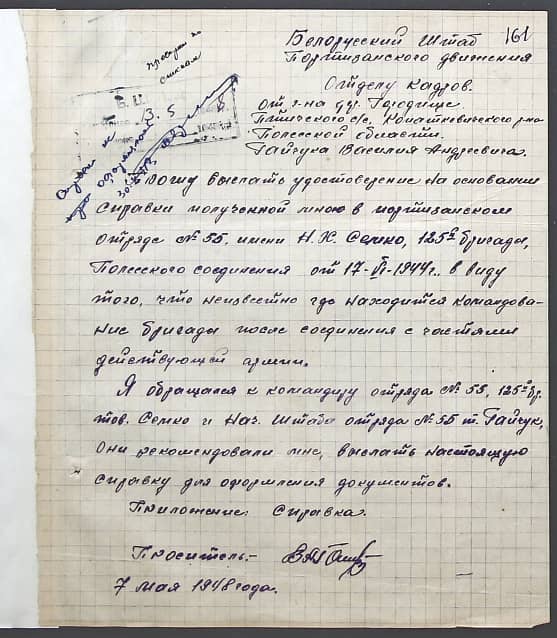 161
Белорусский Штаб
Партизанского движения
Отделу Кадров.
от г-на дер. Городище
Птичского с/с, Копаткевического р-на
Полесской области
Гайчука Василия Андреевича.
проверен по
спискам
13. 5
Прошу выслать удостоверение на основании
справки полученной мною в партизанском
отряде № 55, имени Н. Х. Семко, 125й бригады,
Полесского соединения от 17-VI-1944г., в виду
того, что неизвестно где находится командова-
ние бригады после соединения с частями
действующей армии.
Я обращался к командиру отряда № 55, 125й бр.
тов. Семко и Нач. Штаба отряда № 55 т. Гайчук,
Они рекомендовали мне, выслать настоящую
справку для оформления документов.
Приложение: справка.
Проситель:-
7 мая 1948 года.